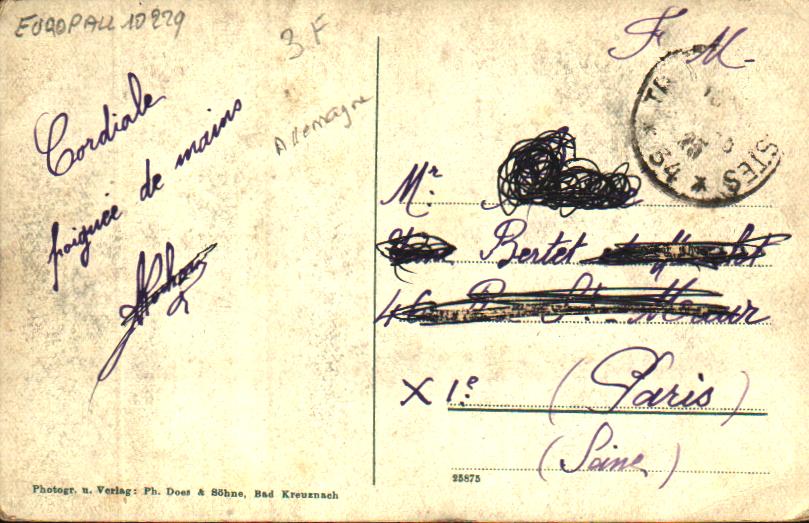 EUROPALL 10229
3 F
Allemagne
Cordiale
poignée de mains
F M.
TR STES
* 54 *
Mr.
Bertet
46 St. Maur
X 1.e (Paris)
(Seine)
Photogr. u. Verlag: Ph. Does & Söhne, Bad Kreuznach
25875